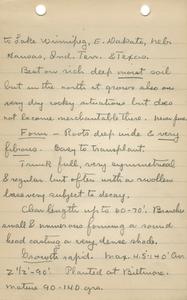 to Lake Winnipeg, E. Dakota, Nebr.
Kansas, Ind. Terr. & Texas.
Best on rich deep moist soil
but in the north it grows also on
very dry rocky situations but does
not become merchantable there.
Form - Roots deep wide & very
fibrous. Easy to transplant.
Trunk full, very symmetrical
& regular but often with a swollen
base very subject to decay.
Clear length up to 60-70'. Branches
small & numerous forming a round
head casting a very dense shade.
Growth rapid. Max. 4.5'-140'
2'1/2-90'. Planted at Biltmore.
mature 90-140 yrs.